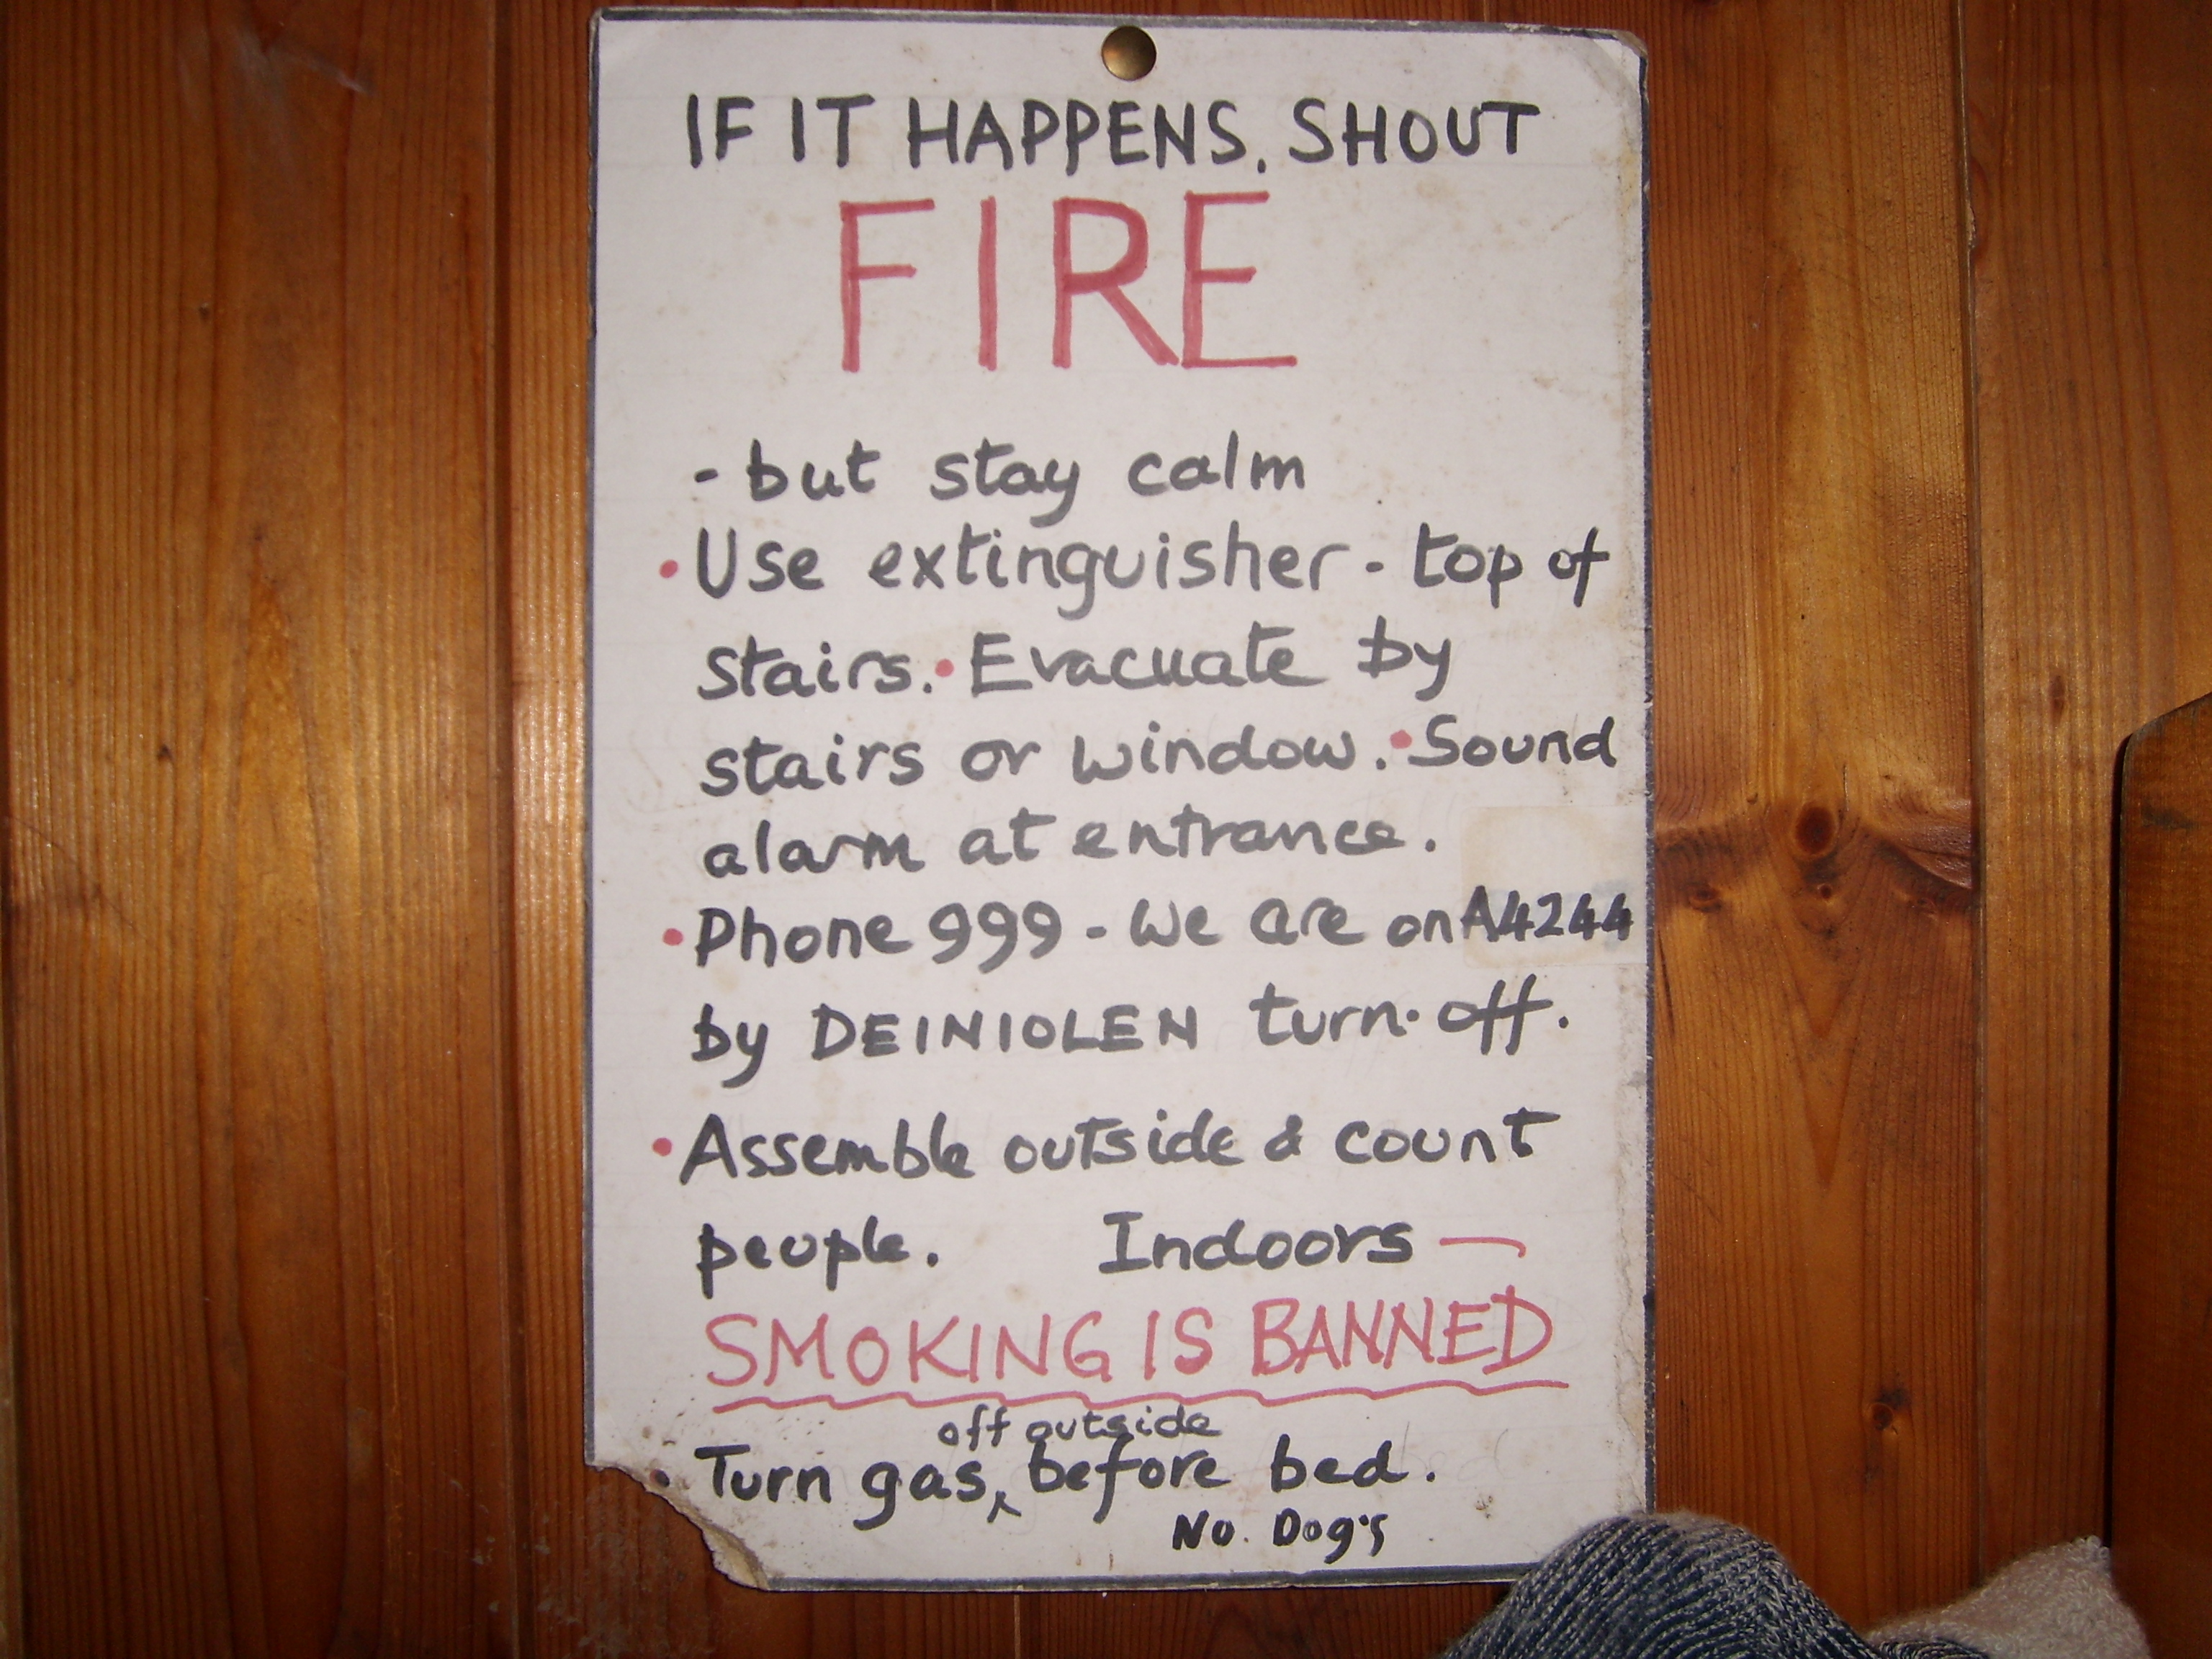 IF IT HAPPENS, SHOUT
FIRE
- but stay calm
• Use extinguisher - top of
stairs. • Evacuate by
stairs or window. • Sound
alarm at entrance.
• Phone 999 - We are on A4244
by DEINIOLEN turn-off.
• Assemble outside & count
people. Indoors —
SMOKING IS BANNED
off outside
• Turn gas, before bed.
No. Dog's